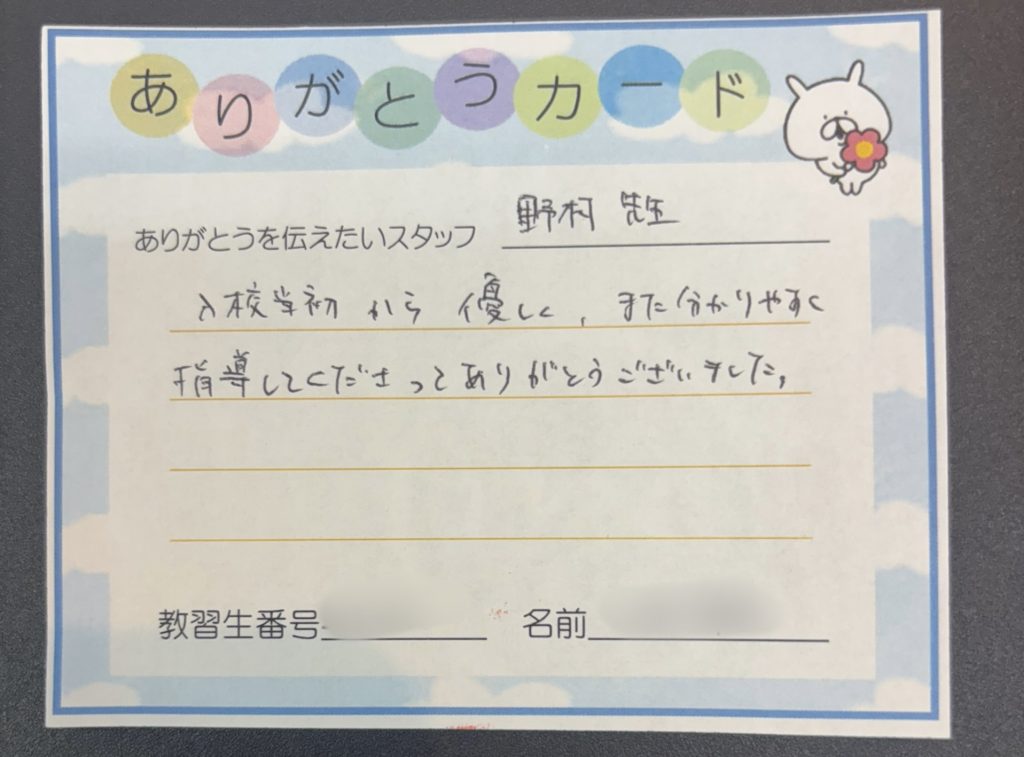 ありがとうカード
ありがとうを伝えたいスタッフ 野村 先生
入校当初から優しく、また分かりやすく
指導してくださってありがとうございました。
教習生番号 名前